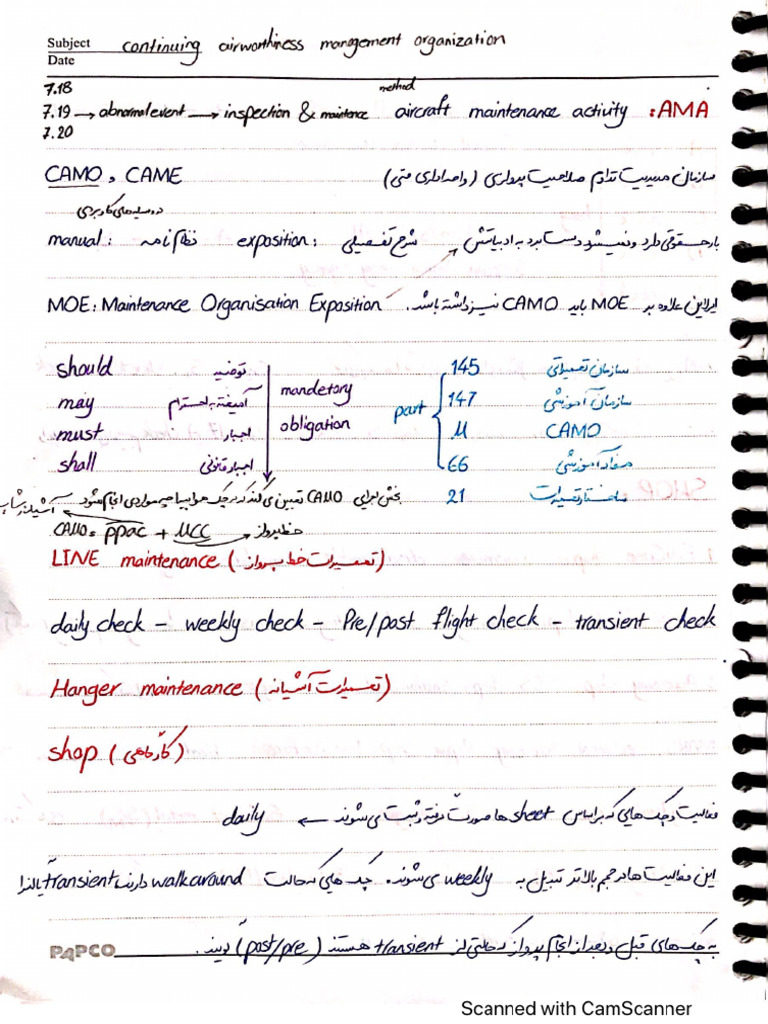 Subject continuing airworthiness management organization
Date
7.18
method
7.19 → abnormal event → inspection & maintence aircraft maintenance activity : AMA
7.20
CAMO , CAME سازمان مدیریت تداوم صلاحیت پروازی (واحد اداری فنی)
manual : نظام نامه exposition : شرح تفصیلی بار حقوقی دارد و نمیشود دست برد به ادبیاتش
MOE : Maintenance Organisation Exposition ایرلاین علاوه بر MOE باید CAMO نیز داشته باشد .
should توصیه mandetory part 145 سازمان تعمیراتی
may آمیخته به احترام 147 سازمان آموزشی
must اجبار obligation M CAMO
shall اجبار قانونی 66 مفاد آموزشی
21 ساختار تعمیرات
بخش اجرایی CAMO تعیین می کند که چک هواپیما چه مواردی انجام شود
CAMO = ppac + MCC خط پرواز
LINE maintenance ( تعمیرات خط پرواز )
daily check – weekly check – Pre/past flight check – transient check
Hanger maintenance ( تعمیرات آشیانه )
shop ( کارگاهی )
فعالیت و چک هایی که بر اساس sheet ها صورت گرفته و ثبت می شوند ← daily
این فعالیت ها در حجم بالاتر تبدیل به weekly می شوند. چک هایی که حالت walkaround دارند transient یا گذرا
به چک های قبل و بعد از انجام پرواز که حالتی از transient هستند (past/pre) گویند .
PAPCO
Scanned with CamScanner